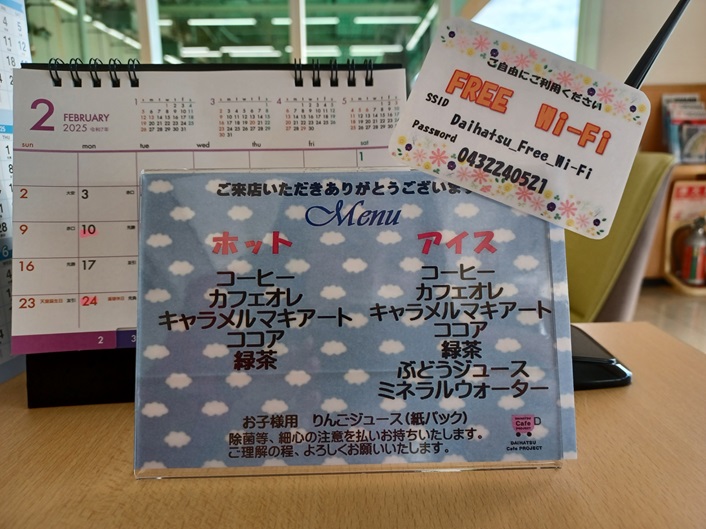 2 FEBRUARY
2025 令和7年
sun mon tue wed thu fri sat
1
2 3
9 10
16 17
23 24
2 3
ご自由にご利用ください
FREE Wi-Fi
SSID Daihatsu_Free_Wi-Fi
Password 0432240521
ご来店いただきありがとうございます
Menu
ホット
コーヒー
カフェオレ
キャラメルマキアート
ココア
緑茶
アイス
コーヒー
カフェオレ
キャラメルマキアート
ココア
緑茶
ぶどうジュース
ミネラルウォーター
お子様用 りんごジュース(紙パック)
除菌等、細心の注意を払いお持ちいたします。
ご理解の程、よろしくお願いいたします。
DAIHATSU
Cafe PROJECT